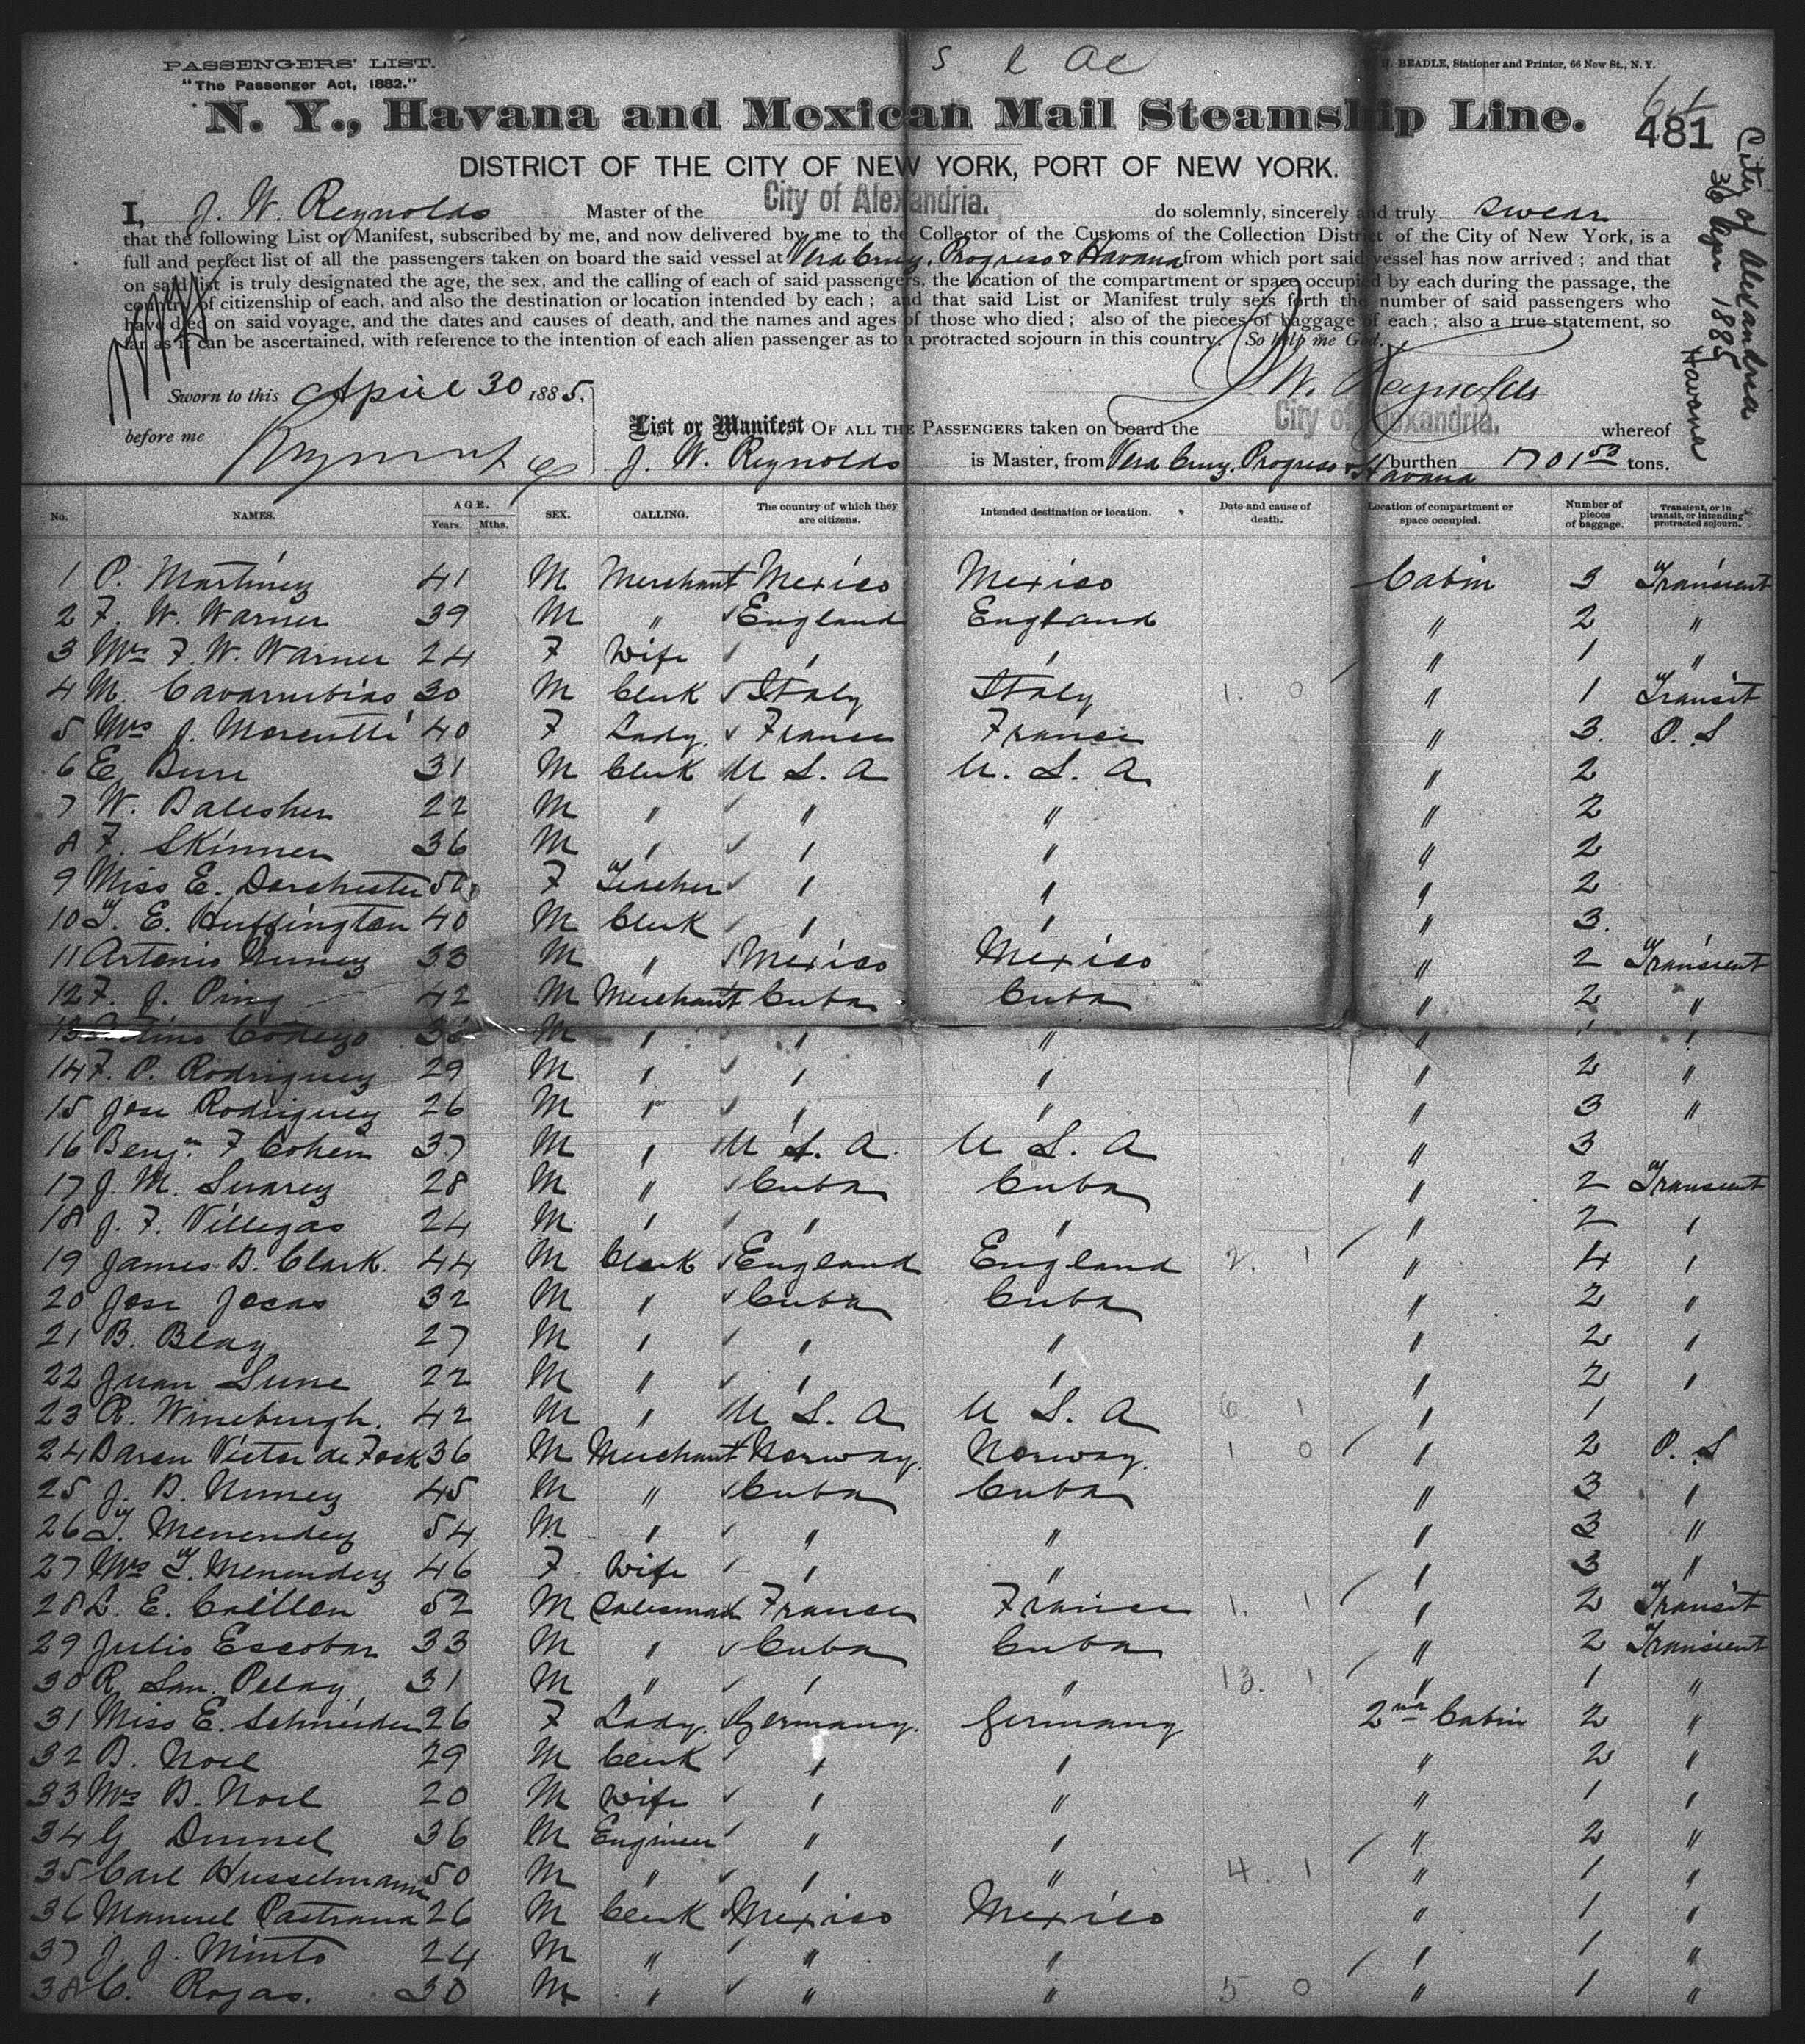 s l ac
PASSENGERS' LIST.
BEADLE, Stationer and Printer, 66 New St., N. Y.
"The Passenger Act, 1882."
N. Y., Havana and Mexican Mail Steamship Line.
481
City of Alexandria
30 Apr 1885
Havana
DISTRICT OF THE CITY OF NEW YORK, PORT OF NEW YORK.
I, J. W. Reynolds Master of the City of Alexandria. do solemnly, sincerely and truly swear
that the following List or Manifest, subscribed by me, and now delivered by me to the Collector of the Customs of the Collection District of the City of New York, is a
full and perfect list of all the passengers taken on board the said vessel at Vera Cruz, Progreso & Havana from which port said vessel has now arrived; and that
on said list is truly designated the age, the sex, and the calling of each of said passengers, the location of the compartment or space occupied by each during the passage, the
country of citizenship of each, and also the destination or location intended by each; and that said List or Manifest truly sets forth the number of said passengers who
have died on said voyage, and the dates and causes of death, and the names and ages of those who died; also of the pieces of baggage of each; also a true statement, so
far as it can be ascertained, with reference to the intention of each alien passenger as to a protracted sojourn in this country. So help me God.
J. W. Reynolds
Sworn to this April 30 1885.
before me
List or Manifest OF ALL THE PASSENGERS taken on board the City of Alexandria. whereof
J. W. Reynolds is Master, from Vera Cruz, Progreso & Havana burthen 1701 53 tons.
No. NAMES. AGE. Years. Mths. SEX. CALLING. The country of which they are citizens. Intended destination or location. Date and cause of death. Location of compartment or space occupied. Number of pieces of baggage. Transient, or in transit, or intending protracted sojourn.
1 P. Martinez 41 M Merchant Mexico Mexico Cabin 3 Transient
2 F. W. Warner 39 M " England England " 2 "
3 Mrs F. W. Warner 24 F Wife " " " 1 "
4 M. Cavarrubias 30 M Clerk Italy Italy 1. 0 " 1 Transit
5 Mrs J. Morcutti 40 F Lady. France France " 3. P. S
6 E. Burr 31 M Clerk U S. A U. S. A " 2
7 W. Balesher 22 M " " " " 2
8 F. Skinner 36 M " " " " 2
9 Miss E. Dorchester 50 F Teacher " " " 2
10 T. E. Huffington 40 M Clerk " " " 3.
11 Artonio Nunez 33 M " Mexico Mexico " 2 Transient
12 F. J. Ping 42 M Merchant Cuba Cuba " 2 "
13 36 M " " " " 1 "
14 F. P. Rodriguez 29 M " " " " 2 "
15 Jose Rodriguez 26 M " " " " 3 "
16 Benj.n F Cohem 37 M " U S. A. U S. A " 3
17 J. M. Suarez 28 M " Cuba Cuba " 2 Transient
18 J. F. Villegas 24 M " " " " 2 "
19 James B. Clark. 44 M Clerk England England 2. 1 " 4 "
20 Jose Jocas 32 M " Cuba Cuba " 2 "
21 B. Blay 27 M " " " " 2 "
22 Juan Sune 22 M " " " " 2 "
23 R. Wineburgh. 42 M " U S. A U S. A 6 1 " 1
24 Baron Victor de Fock 36 M Merchant Norway. Norway. 1 0 " 2 P. S
25 J. B. Nunez 45 M " Cuba Cuba " 3 "
26 T. Menendez 54 M " " " " 3 "
27 Mrs T. Menendez 46 F Wife " " " 3 "
28 L. E. Caillen 52 M Salesman France France 1. 1 " 2 Transit
29 Julio Escobar 33 M " Cuba Cuba " 2 Transient
30 R. San Pelay 31 M " " " 13. 1 " 1 "
31 Miss E. Schneider 26 F Lady. Germany. Germany 2nd Cabin 2 "
32 B. Noel 29 M Clerk " " " 2 "
33 Mrs B. Noel 20 M Wife " " " 1 "
34 G Dumel 36 M Engineer " " " 2 "
35 Carl Husselmann 50 M " " " 4. 1 " 1 "
36 Manuel Pastrana 26 M Clerk Mexico Mexico " 1 "
37 J. J. Minto 24 M " " " " 1 "
38 C. Rojas. 30 M " " " 5. 0 " 1 "